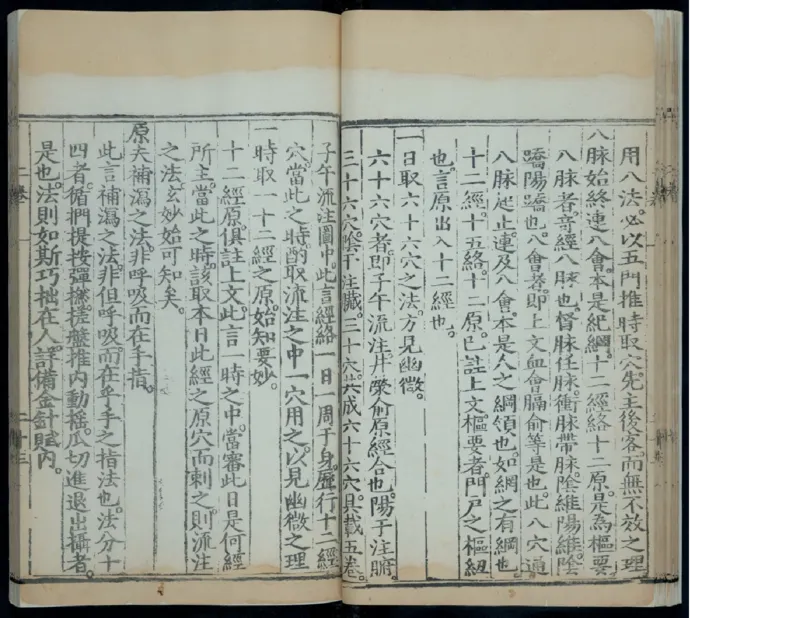 用八法。必以五門推時取穴。先主後客。而無不效之理
八脉始終連八會。本是紀綱。十二經絡十二原。是為樞要
八脉者。竒經八脉也。督脉任脉。衝脉帶脉。陰維陽維。陰
蹻陽蹻也。八會者。即上文血會膈俞等是也。此八穴通
八脉起止。連及八會。本是人之綱領也。如網之有綱也。
十二經。十五絡。十二原。已註上文。樞要者。門戶之樞紐
也。言原出入十二經也。
一日取六十六穴之法。方見幽微。
六十六穴者。即子午流注。井滎俞原經合也。陽于注腑。
三十六穴。陰于注臟。三十穴。共成六十六穴。具載五卷。
子午流注圖中。此言經絡一日一周于身。歷行十二經
穴。當此之時。酌取流注之中一穴用之。以見幽微之理
一時取一十二經之原。始知要妙。
十二經原。俱註上文。此言一時之中。當審此日是何經
所主。當此之時。該取本日此經之原穴而刺之。則流注
之法玄妙始可知矣。
原夫補瀉之法。非呼吸而在手指。
此言補瀉之法。非但呼吸。而在乎手之指法也。法分十
四者。循捫提按。彈撚搓盤。推內動搖。爪切進退出攝者。
是也。法則如斯。巧拙在人。詳備金針賦內。
二卷
二十三